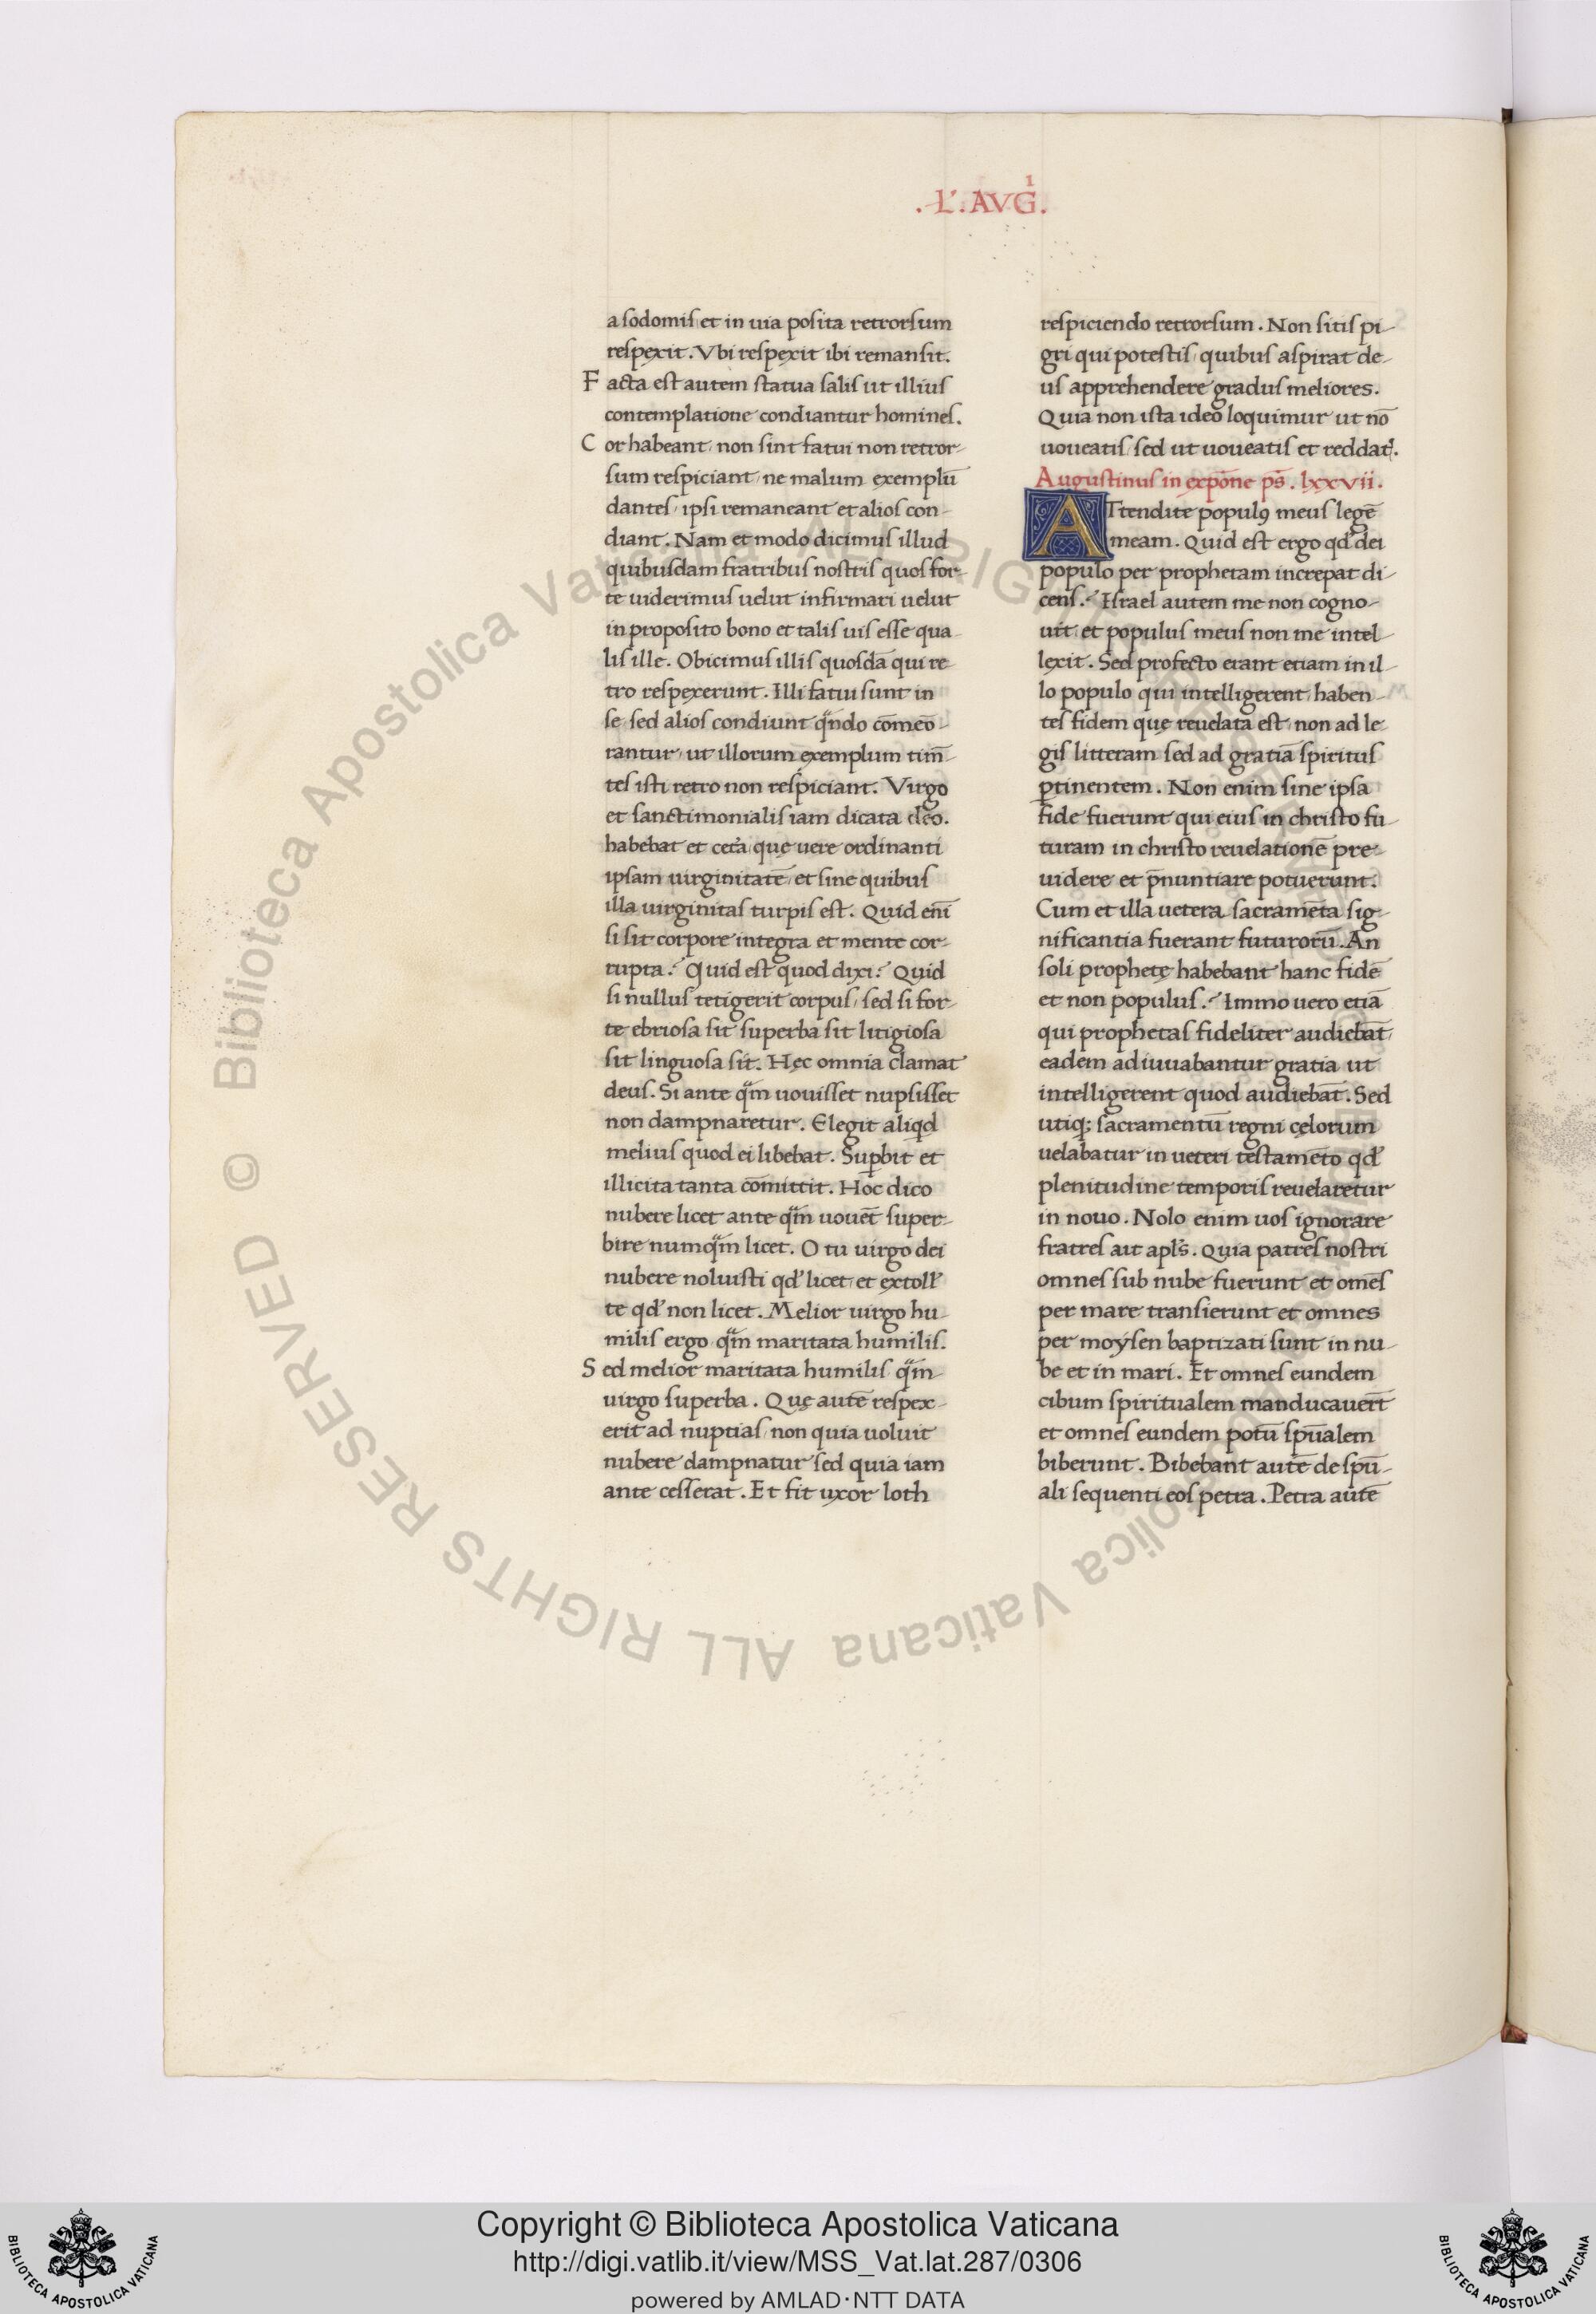 .L'. AVG̅ⁱ.
a sodomis et in uia posita retrorsum
respexit. Vbi respexit ibi remansit.
Facta est autem statua salis ut illius
contemplatione condiantur homines.
Cor habeant, non sint fatui non retror-
sum respiciant, ne malum exemplū
dantes, ipsi remaneant et alios con-
diant. Nam et modo dicimus illud
quibusdam fratribus nostris quos for-
te uiderimus uelut infirmari uelut
in proposito bono et talis uis esse qua
lis ille. Obicimus illis quosdā qui re
tro respexerunt. Illi fatui sunt in
se, sed alios condiunt qn̄do cōmēo-
rantur, ut illorum exemplum tim̄-
tes isti retro non respiciant. Virgo
et sanctimonialis iam dicata deo.
habebat et cet̓a quę uere ordinanti
ipsam uirginitatē, et sine quibus
illa uirginitas turpis est. Quid eni̅
si sit corpore integra et mente cor-
rupta? Quid est quod dixi? Quid
si nullus tetigerit corpus, sed si for-
te ebriosa sit superba sit litigiosa
sit linguosa sit. Hęc omnia clamat
deus. Si ante qm̄ uouisset nupsisset
non dampnaretur. Elegit aliqd
melius quod ei libebat. Suꝑbit et
illicita tanta cōmittit. Hoc dico
nubere licet ante qm̄ uouet̄ super-
bire numqm̄ licet. O tu uirgo dei
nubere noluisti qd' licet, et extoll'
te qd' non licet. Melior uirgo hu-
milis ergo qm̄ maritata humilis.
Sed melior maritata humilis qm̄
uirgo superba. Quę autē respex-
erit ad nuptias, non quia uoluit
nubere dampnatur sed quia iam
ante cesserat. Et fit uxor loth
respiciendo retrorsum. Non sitis pi-
gri qui potestis, quibus aspirat de-
us apprehendere gradus meliores.
Quia non ista ideo loquimur ut nō
uoueatis, sed ut uoueatis et reddat'.
Augustinus in expōne ps̄. lxxvii.
ATtendite populꝰ meus legē
meam. Quid est ergo qd' dei
populo per prophetam increpat di-
cens? Israel autem me non cogno-
uit, et populus meus non me intel-
lexit. Sed profecto erant etiam in il-
lo populo qui intelligerent, haben-
tes fidem quę reuelata est, non ad le
gis litteram sed ad gratiā spiritus
ꝑtinentem. Non enim sine ipsa
fide fuerunt qui eius in christo fu-
turam in christo reuelationē pre-
uidere et p̄nuntiare potuerunt.
Cum et illa uetera sacramēta sig-
nificantia fuerant futurorū. An
soli prophetę habebant hanc fidē
et non populus? Immo uero etiā
qui prophetas fideliter audiebāt,
eadem adiuuabantur gratia ut
intelligerent quod audiebāt. Sed
utiq; sacramentū regni cęlorum
uelabatur in ueteri testamēto qd'
plenitudine temporis reuelaretur
in nouo. Nolo enim uos ignorare
fratres ait apl's. Quia patres nostri
omnes sub nube fuerunt et om̄es
per mare transierunt et omnes
per moysen baptizati sunt in nu-
be et in mari. Et omnes eundem
cibum spiritualem manducauer̄t
et omnes eundem potū spūalem
biberunt. Bibebant autē de spū-
ali sequenti eos petra. Petra autē
© Biblioteca Apostolica Vaticana ALL RIGHTS RESERVED
Copyright © Biblioteca Apostolica Vaticana
http://digi.vatlib.it/view/MSS_Vat.lat.287/0306
powered by AMLAD·NTT DATA
BIBLIOTECA APOSTOLICA VATICANA
BIBLIOTECA APOSTOLICA VATICANA